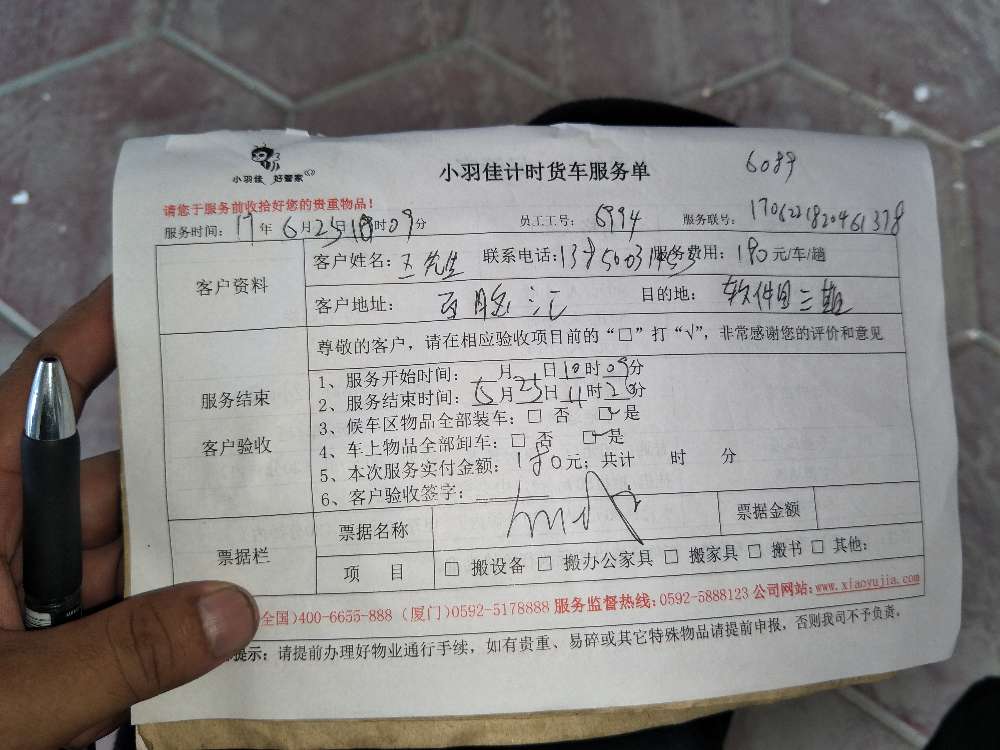 小羽佳 好管家
小羽佳计时货车服务单
6089
请您于服务前收拾好您的贵重物品！
服务时间：17年6月25日10时09分 员工工号：6994 服务联号：
客户资料
客户姓名：王先生 联系电话： 服务费用：180元/车/趟
客户地址： 目的地：软件园三期
尊敬的客户，请在相应验收项目前的“□”打“√”，非常感谢您的评价和意见
服务结束
客户验收
1、服务开始时间： 月 日10时09分
2、服务结束时间： 月25日11时 分
3、候车区物品全部装车：□ 否 □ 是
4、车上物品全部卸车：□ 否 □ 是
5、本次服务实付金额：180元；共计 时 分
6、客户验收签字：
票据栏
票据名称 票据金额
项 目 □ 搬设备 □ 搬办公家具 □ 搬家具 □ 搬书 □ 其他：
全国)400-6655-888 (厦门)0592-5178888 服务监督热线：0592-5888123 公司网站：www.xiaoyujia.com
提示：请提前办理好物业通行手续，如有贵重、易碎或其它特殊物品请提前申报，否则我司不予负责。